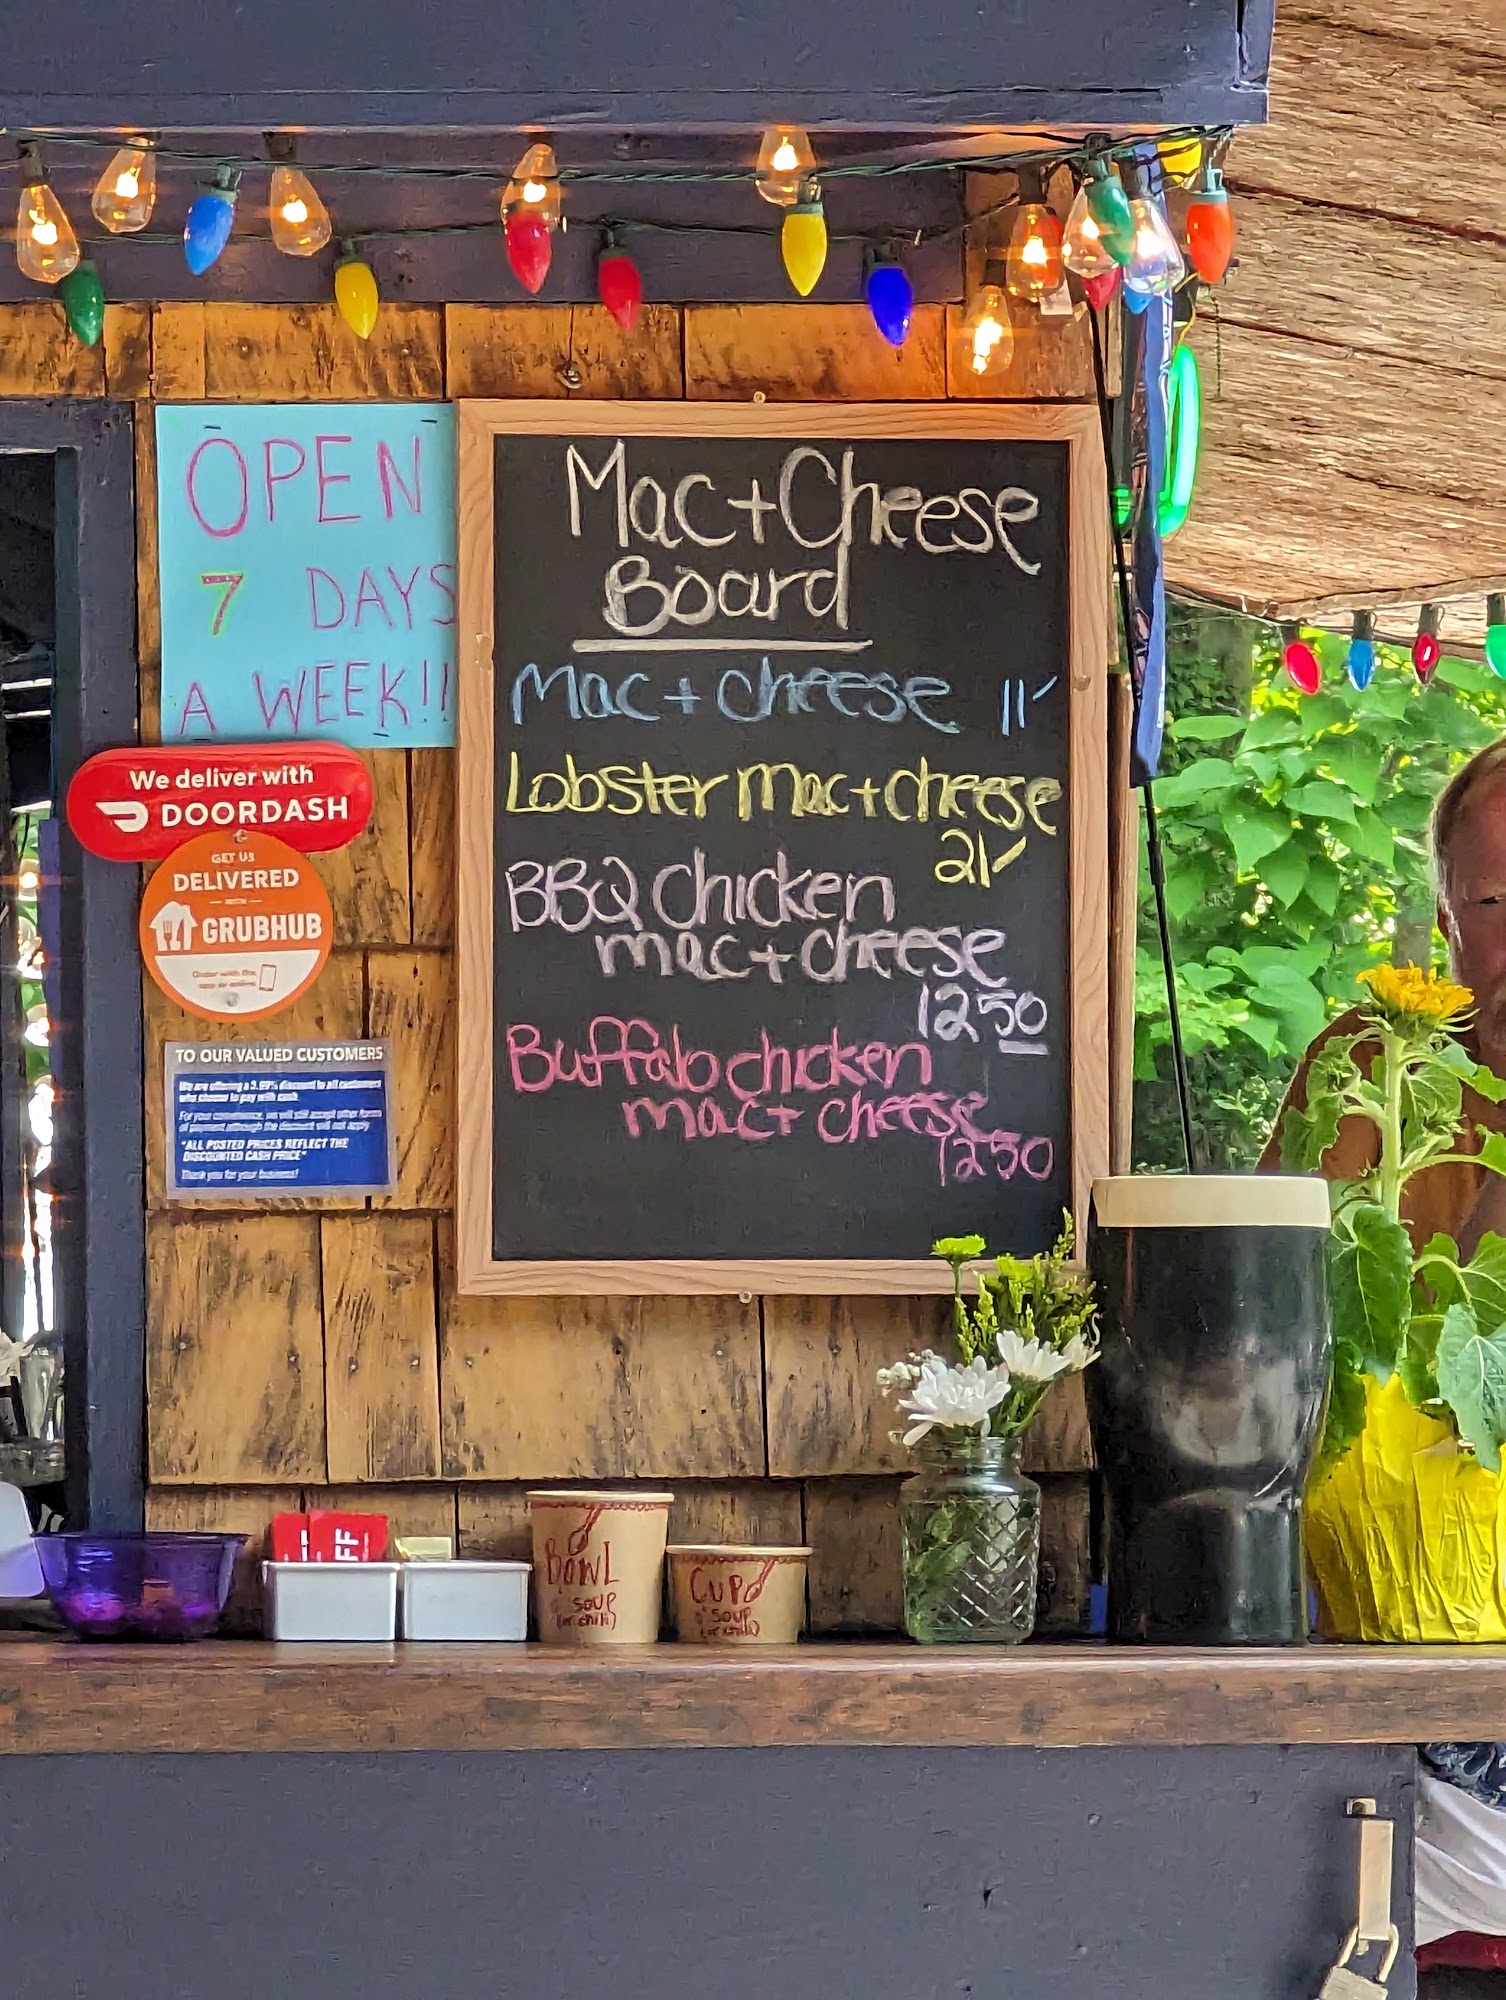 OPEN
7 DAYS
A WEEK!!
Mac + Cheese
Board
Mac + cheese 11
Lobster Mac + cheese
21
BBQ chicken
mac + cheese
1250
Buffalo chicken
mac + cheese
1250
We deliver with
DOORDASH
GET US
DELIVERED
WITH
GRUBHUB
Order with the
app or online
TO OUR VALUED CUSTOMERS
We are offering a 3.99% discount to all customers
who choose to pay with cash.
For your convenience, we will still accept other forms
of payment although the discount will not apply
"ALL POSTED PRICES REFLECT THE
DISCOUNTED CASH PRICE"
Thank you for your business!
BOWL
o' SOUP
(or chili)
CUP
o' SOUP
(or chili)